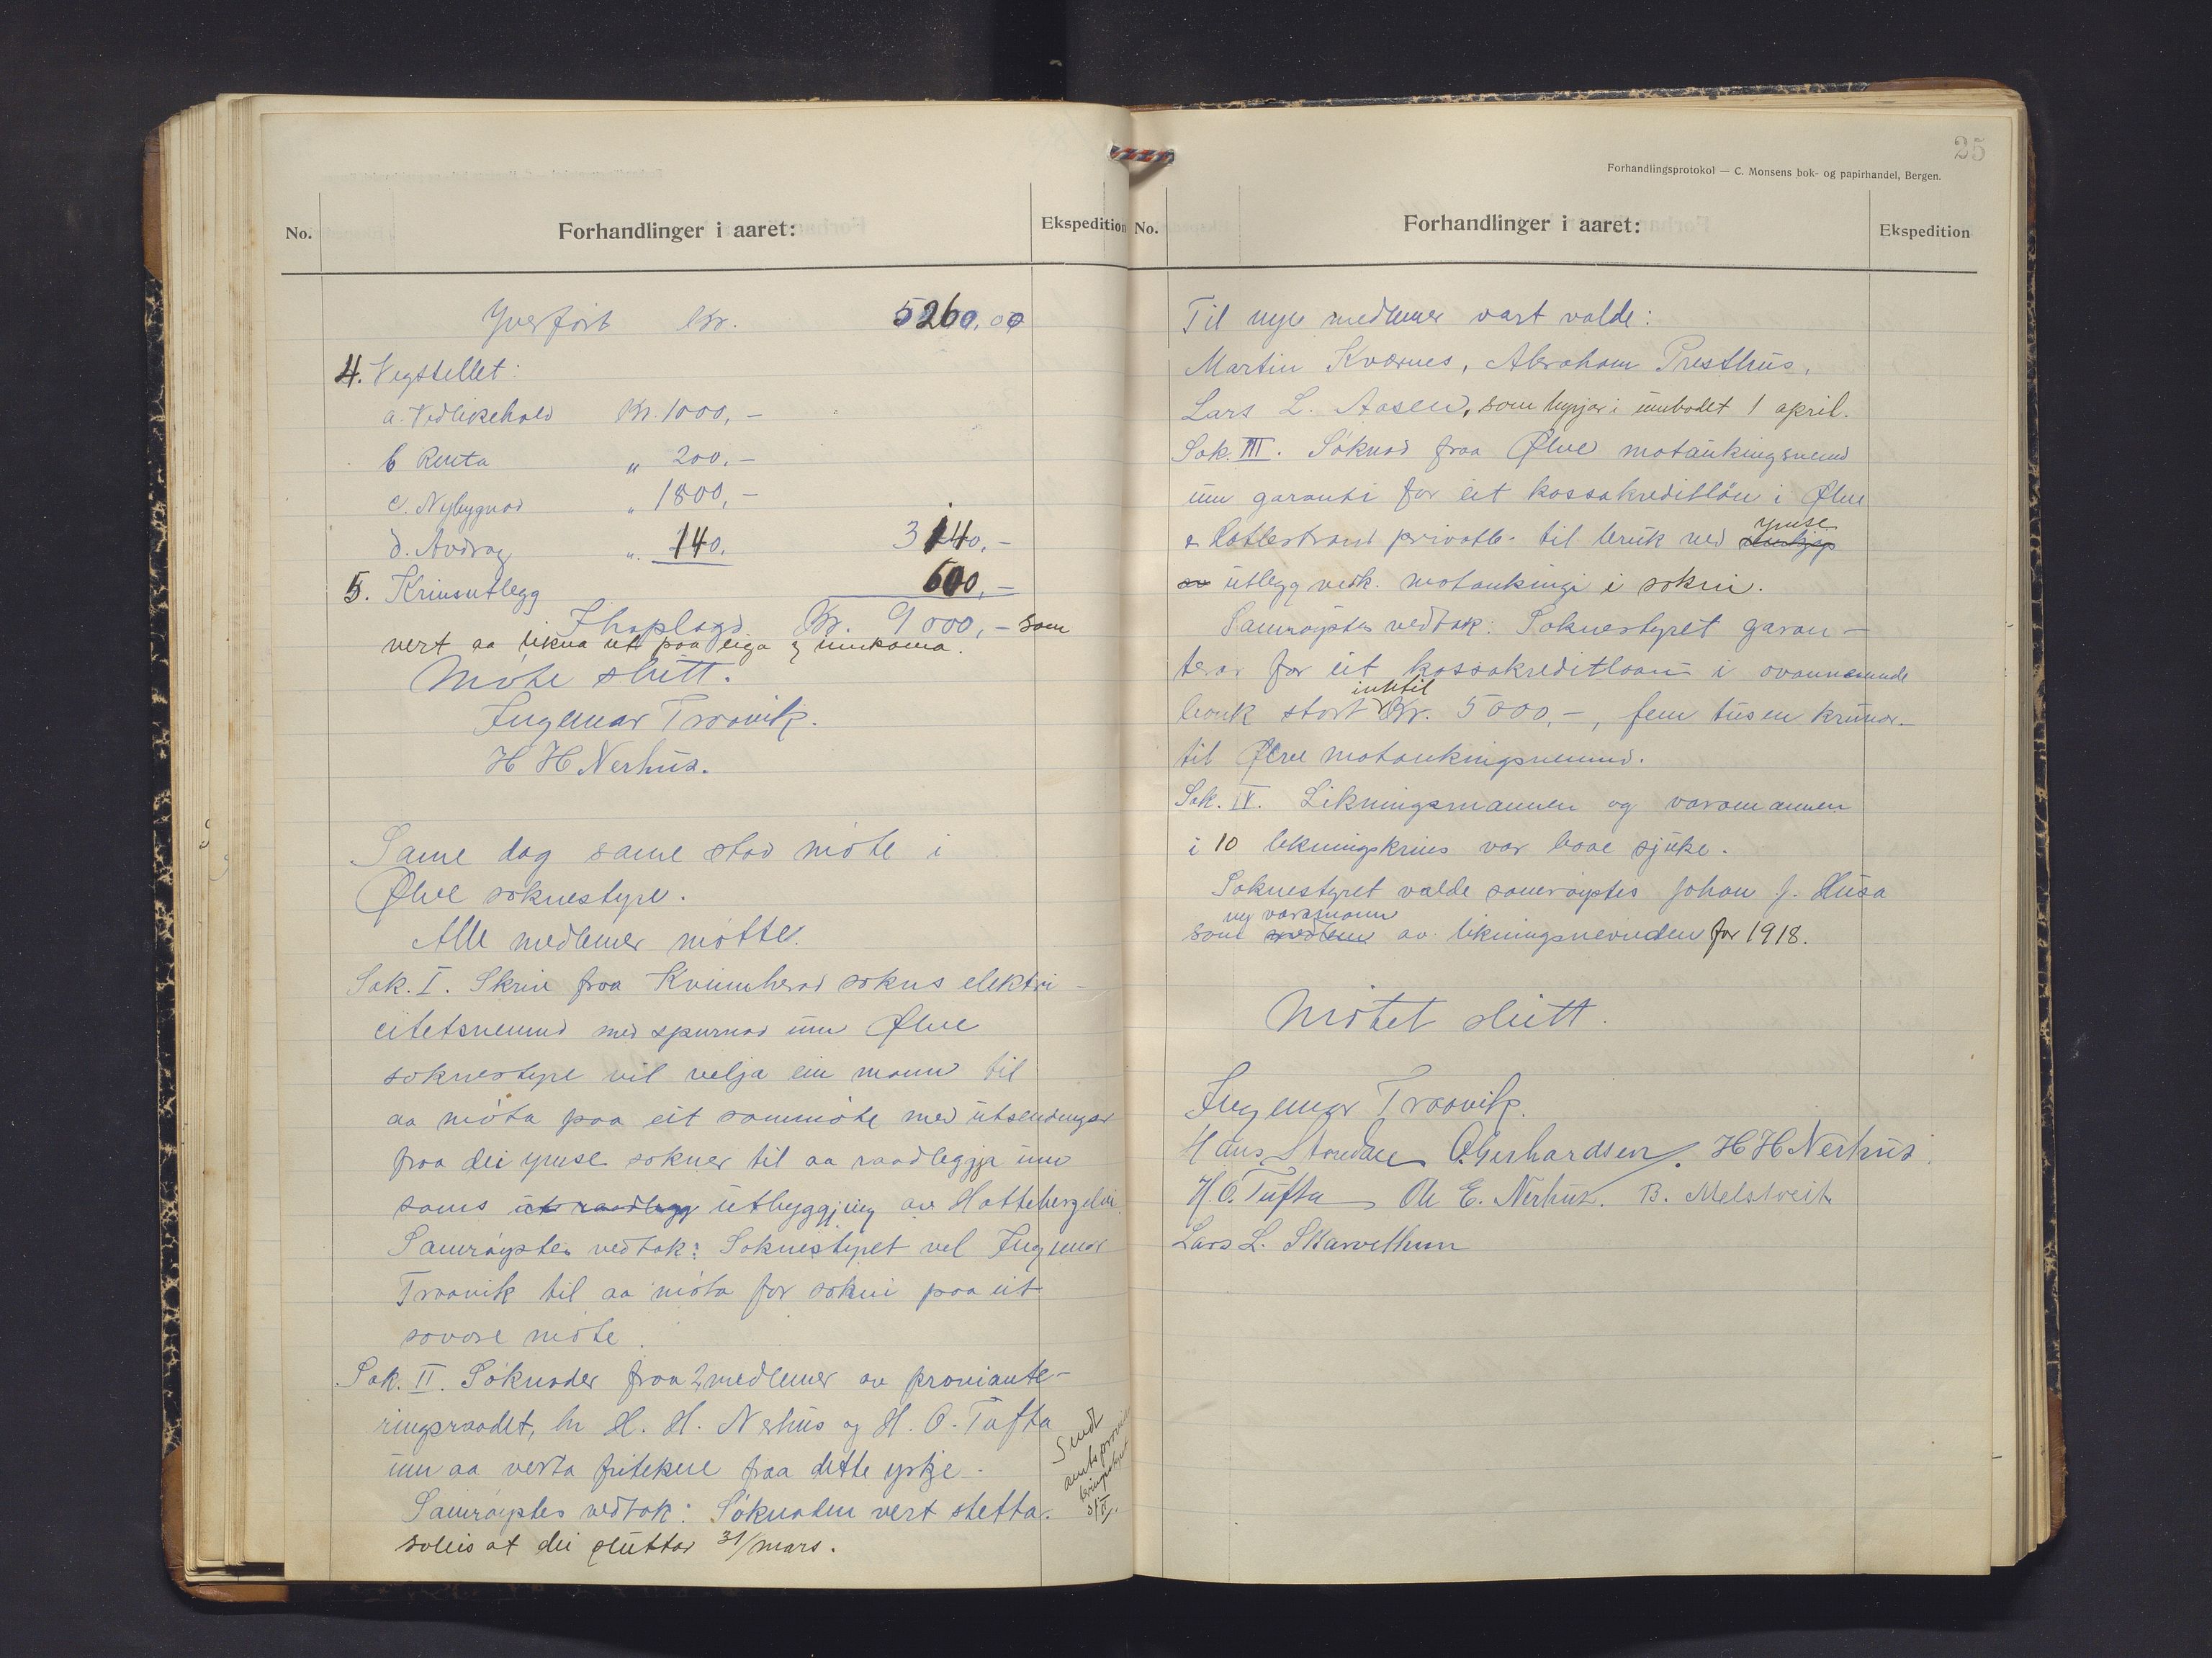 No.
Forhandlinger i aaret:
Ekspedition
Yverført Kr. 5260,00
4. Vegstellet:
a. Vedlikehald Kr. 1000,-
b Renta „ 200,-
c. Nybygnad „ 1800,-
d. Avdrag „ 140. 3140,-
5. Krinsutlegg 600,-
Ihoplagd Kr. 9000,- som
vert aa likna ut paa eiga og innkoma.
Møte slutt.
Ingemar Traavik.
H H Nerhus.
Same dag same stad møte i
Ølve soknestyre.
Alle medlemer møtte.
Sak. I. Skriv fraa Kvinnherad sokns elektri-
citetsnemnd med spurnad um Ølve
soknestyre vil velja ein mann til
aa møta paa eit sammøte med utsendingar
fraa dei ymse sokner til aa raadleggja um
sams ut raadlegg utbyggjing av Hattebergelvi.
Samrøystes vedtak: Soknestyret vel Ingemar
Traavik til aa møta for sokni paa eit
sovore møte.
Sak. II. Søknader fraa 2 medlemer av proviante-
ringsraadet, hr H. H. Nerhus og H. O. Tufta
um aa verta fritekne fraa dette yrkje.
Samrøystes vedtak: Søknaden vert stetta.
soleis at dei sluttar 31/mars.
Sendt
amtsprovian
teringsstyret
25
Forhandlingsprotokol — C. Monsens bok- og papirhandel, Bergen.
No.
Forhandlinger i aaret:
Ekspedition
Til nye medlemer vart valde:
Martin Kvarnes, Abraham Presthus,
Lars L. Aasen, som byrjar i umbodet 1 april.
Sak. III. Søknad fraa Ølve mataukingsnemnd
um garanti for eit kassakreditlån i Ølve
& Hatlestrand privatb. til bruk ved ymse
av utlegg vedk. mataukingi i sokni.
Samrøystes vedtak: Soknestyret garan-
terar for eit kassakreditlaan i ovannemnde
bank stort inntil Kr. 5000,-, fem tusen krunor-
til Ølve mataukingsnemnd.
Sak. IV. Likningsmannen og varamannen
i 10 likningskrins var baae sjuke.
Soknestyret valde samrøystes Johan J. Husa
som ny varamann medlem av likningsnevnden for 1918.
Møtet slutt.
Ingemar Traavik.
Hans Strudne O. Gerhardsen. H H Nerhus
H. O. Tufta Ole E. Nerhus. B. Melstveit
Lars L. Skarvethun